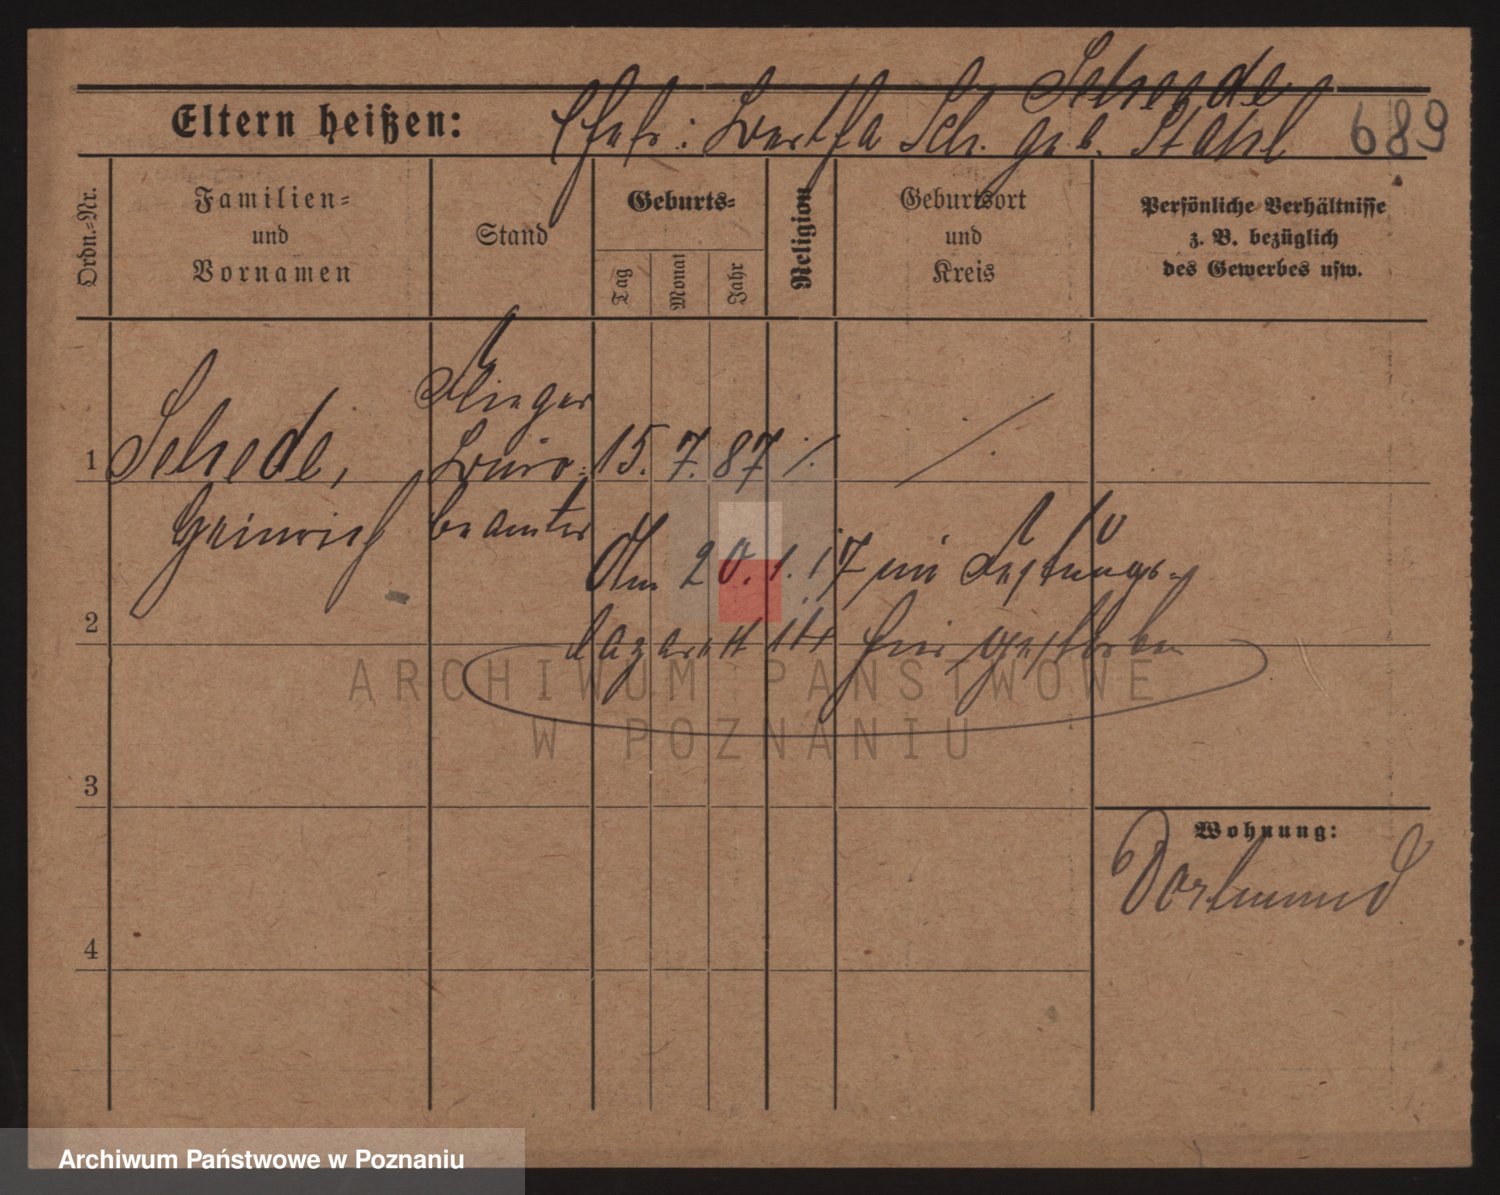 Schrede
Eltern heißen: Ehefr: Bertha Sch. geb. Stahl 689
Ordn.-Nr.
Familien=
und
Vornamen
Stand
Geburts=
Tag
Monat
Jahr
Religion
Geburtsort
und
Kreis
Persönliche Verhältnisse
z. B. bezüglich
des Gewerbes usw.
Flieger
1 Schrede, Büro= 15. 7. 87 ·/.
Heinrich beamter
Am 20.1.17 im Festungs=
2 lazarett III hier gestorben
ARCHIWUM PAŃSTWOWE
W POZNANIU
3
Wohnung:
Dortmund
4
Archiwum Państwowe w Poznaniu